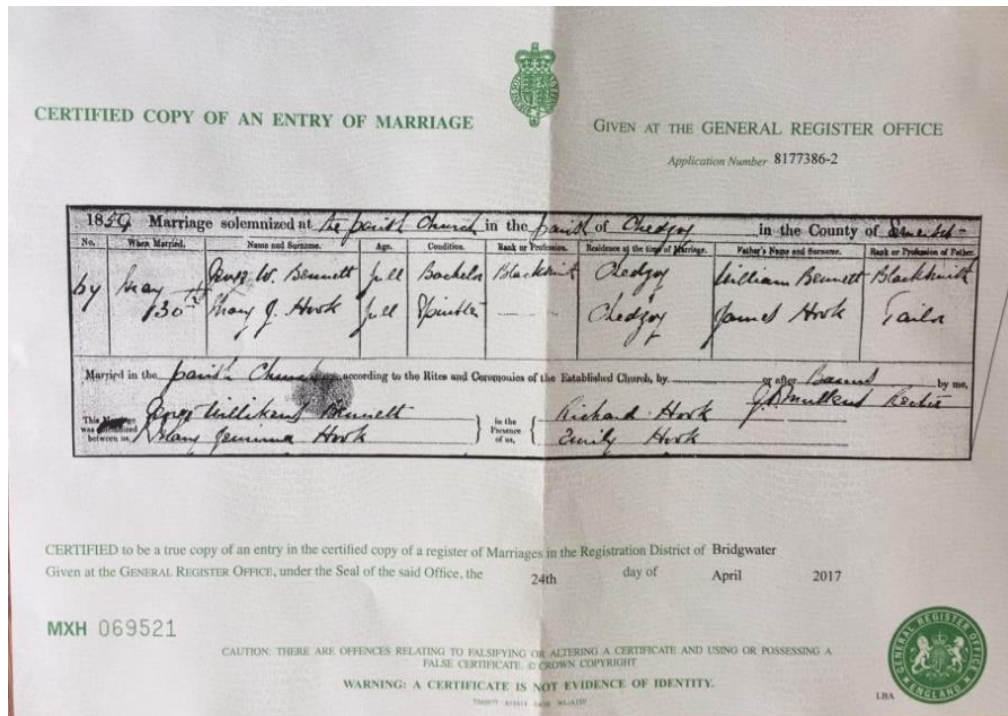 CERTIFIED COPY OF AN ENTRY OF MARRIAGE
GIVEN AT THE GENERAL REGISTER OFFICE
Application Number 8177386-2
1859 Marriage solemnized at the parish Church in the parish of Chedzoy in the County of Somerset
No. When Married. Name and Surname. Age. Condition. Rank or Profession. Residence at the time of Marriage. Father's Name and Surname. Rank or Profession of Father.
May George W. Bennett full Bachelor Blacksmith Chedzoy William Bennett Blacksmith
30th Mary J. Hook full Spinster Chedzoy James Hook Tailor
Married in the parish Church according to the Rites and Ceremonies of the Established Church, by or after Banns by me,
This Marriage was solemnized between us, George Bennett in the Presence of us, Richard Hook Rector
Mary Jemima Hook Emily Hook
CERTIFIED to be a true copy of an entry in the certified copy of a register of Marriages in the Registration District of Bridgwater
Given at the GENERAL REGISTER OFFICE, under the Seal of the said Office, the 24th day of April 2017
MXH 069521
CAUTION: THERE ARE OFFENCES RELATING TO FALSIFYING OR ALTERING A CERTIFICATE AND USING OR POSSESSING A
FALSE CERTIFICATE. © CROWN COPYRIGHT
WARNING: A CERTIFICATE IS NOT EVIDENCE OF IDENTITY.
GENERAL REGISTER OFFICE
ENGLAND